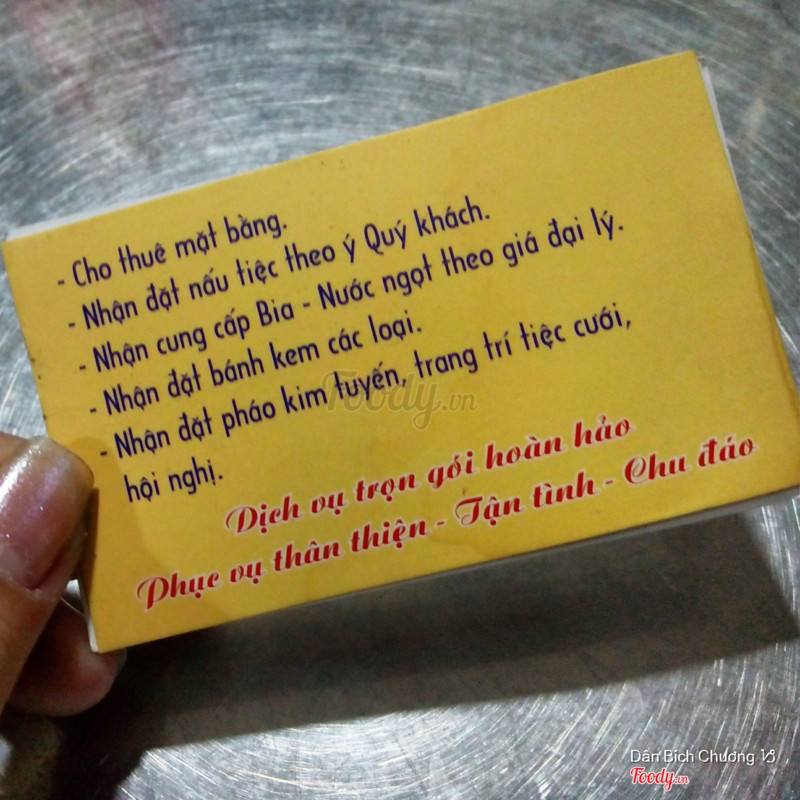 - Cho thuê mặt bằng.
- Nhận đặt nấu tiệc theo ý Quý khách.
- Nhận cung cấp Bia - Nước ngọt theo giá đại lý.
- Nhận đặt bánh kem các loại.
- Nhận đặt pháo kim tuyến, trang trí tiệc cưới,
hội nghị.
Foody.vn
Dịch vụ trọn gói hoàn hảo
Phục vụ thân thiện - Tận tình - Chu đáo
Dân Bich Chương
Foody.vn